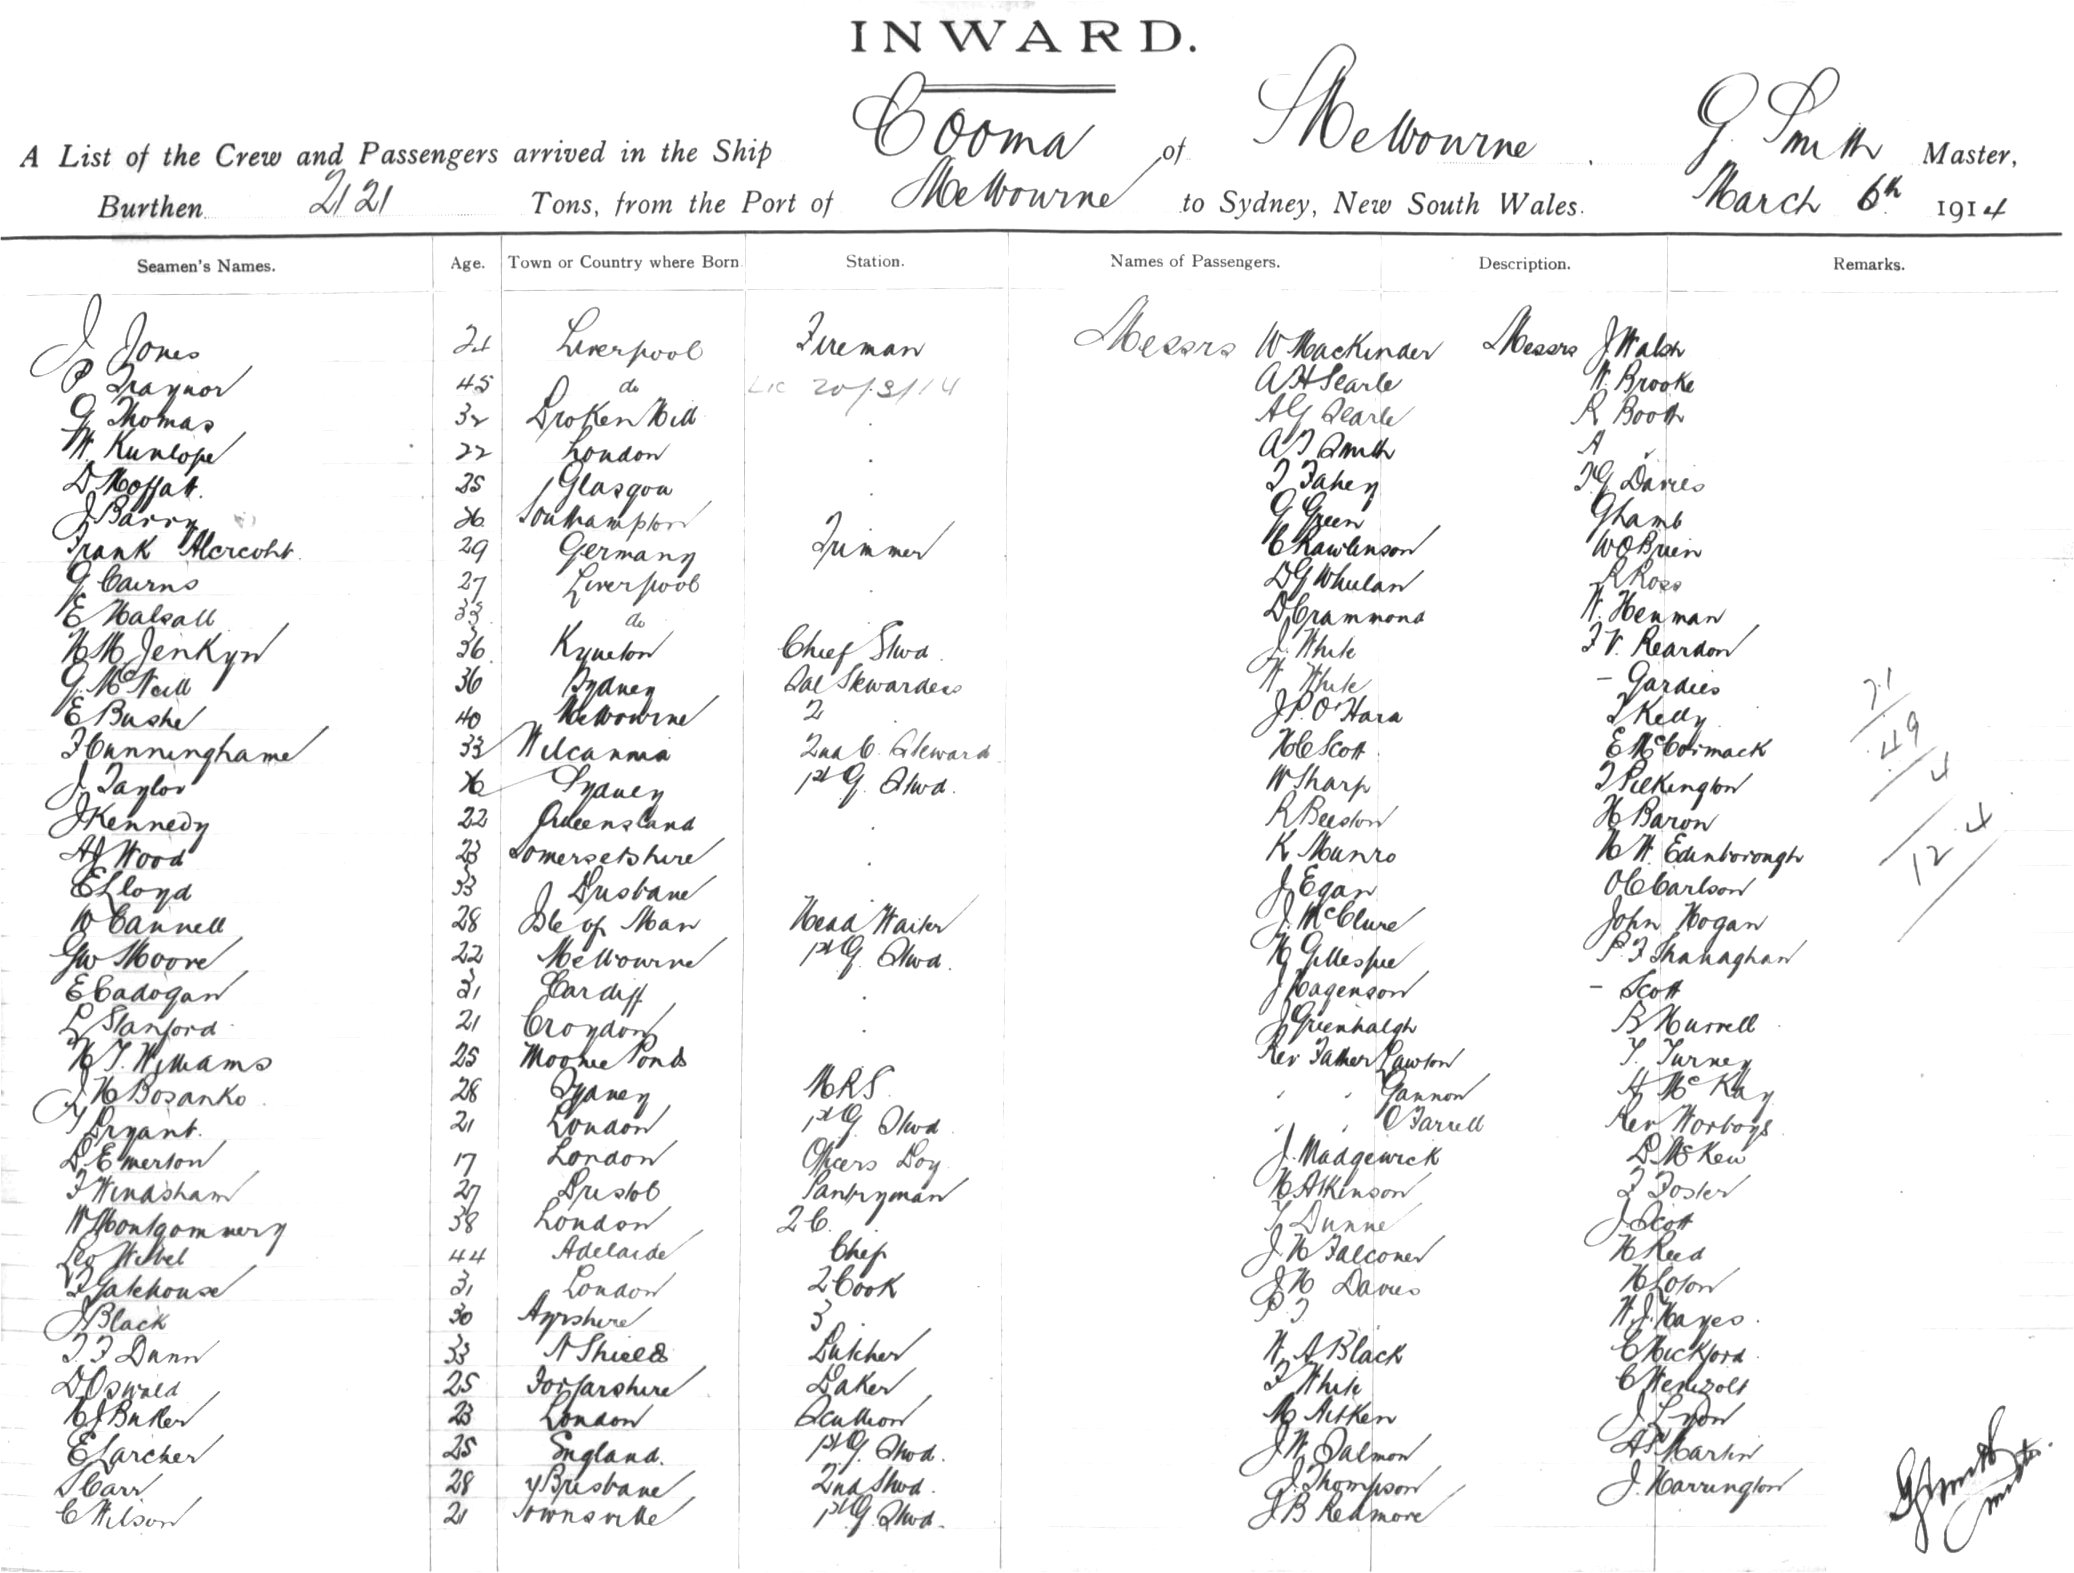 INWARD.
A List of the Crew and Passengers arrived in the Ship Cooma of Melbourne. G. Smith Master,
Burthen 2121 Tons, from the Port of Melbourne to Sydney, New South Wales. March 6th 1914
Seamen's Names. Age. Town or Country where Born Station. Names of Passengers. Description. Remarks.
J Jones Liverpool Fireman Messrs W MacKinder Messrs J Walsh
P Traynor 45 do Lic 20/3/14 A H Searle W. Brooke
G Thomas 32 Broken Hill A G Searle R Booth
W. Kunlope 22 London A T Smith A "
D Moffatt. 25 Glasgow T Fahey T G Davies
J Barry 26 Southampton G Green G Lamb
Frank 29 Germany Trimmer C Rawlinson W O Brien
G Cairns 27 Liverpool D G Whelan R Ross
E Halsall 33 do D Crammond W. Henman
H M Jenkyn 36 Kyneton Chief Stwd. J. White T V. Reardon
G. McNeill 36 Sydney Sal Stewardess W White - Gardies
E Bushe 40 Melbourne 2 J. P. O'Hara T Kelly 71
F Cunninghame 33 Wilcannia 2nd C. Steward H C Scott E McCormack 49
J. Taylor 26 Sydney 1st G. Stwd. W Sharp T Pilkington 4
J Kennedy 22 Queensland R Beeston H Baron 124
A J Wood 23 Somersetshire K Munro H W. Edinborough
E Lloyd 33 Brisbane J Egan O C Carlson
W Cannell 28 Isle of Man Head Waiter J. McClure John Hogan
G W Moore 22 Melbourne 1st G. Stwd. H Gillespie P. F Shanaghan
E Cadogan 31 Cardiff J Hagenson - Scott
L Stanford 21 Croydon J Greenhalgh B Hurrell
H T. Williams 25 Moonee Ponds Rev Father Lawton T. Turney
J H Bosanko 28 Sydney M R S " " Gannon A McKay
T Bryant. 21 London 1st G. Stwd " " O Farrell Rev Worboys
D Emerton 17 London Officers Boy J. Madgewick D. McKew
F Windsham 27 Bristol Pantryman H Atkinson F Foster
W Montgommery 38 London 2 C. T Dunne J Scott
Leo Wibel 44 Adelaide Chef J. H Falconer H Reed
F Gatehouse 31 London 2 Cook J H Davies H Loton
J Black 30 Ayrshire 3 P T W. J. Hayes.
T. F Dunn 33 N Shields Butcher W. A Black C Hickford
D Oswald 25 Forfarshire Baker F White C
H J Butler 23 London Scullion M Aitken J. Lyon
E Larcher 25 England. 1st G. Stwd. J. W. Salmon A P Martin
S Carr 28 Brisbane 2nd Stwd. J. Thompson J. Harrington
C Wilson 21 Townsville 1st G. Stwd. J B Redmore
G Smith
master.